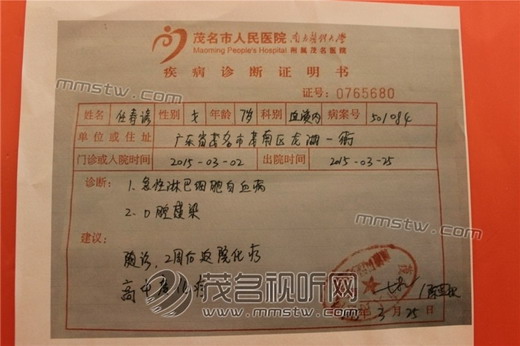 茂名市人民医院 南方医科大学
Maoming People's Hospital 附属茂名医院
疾病诊断证明书
证号:0765680
姓名 任 性别 女 年龄 7岁 科别 血液内 病案号 501084
单位或住址 广东省茂名市茂南区龙湖一街
门诊或入院时间 2015-03-02 出院时间 2015-03-25
诊断: 1.急性淋巴细胞白血病
2.口腔感染
建议:
随诊,2周后返院化疗
3月25日
茂名视听网
www.mmstw.com
mmstw.com
mmstw.com